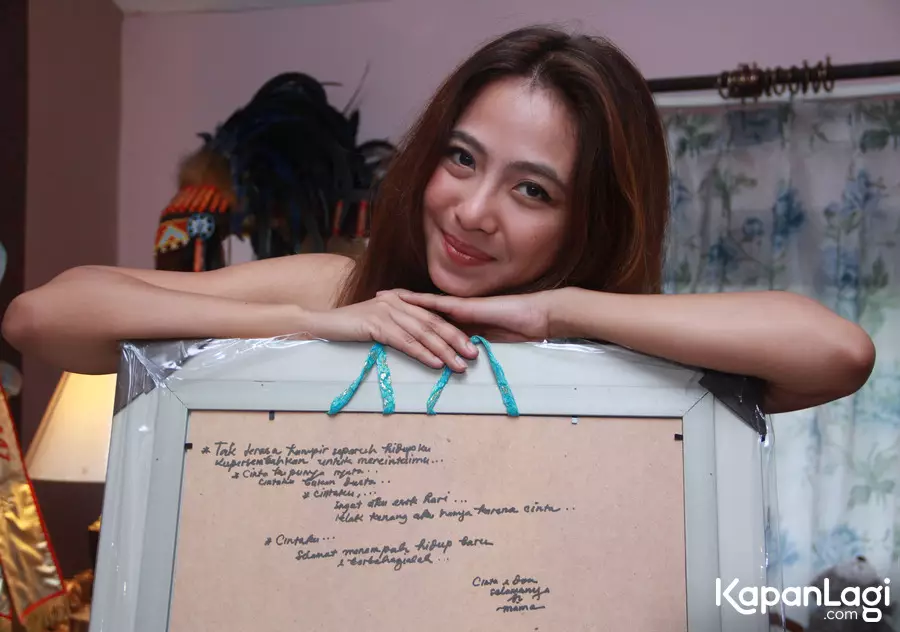 * Tak terasa hampir separuh hidupku
kupersembahkan untuk mencintaimu...
* Cinta ku punya mata...
Cintaku bukan buta...
* Cintaku,...
Ingat aku esok hari...
kelak kenang aku hanya karena cinta...
* Cintaku...
Selamat menempuh hidup baru
& berbahagialah...
Cinta & Doa
selamanya
mama
KapanLagi
.com